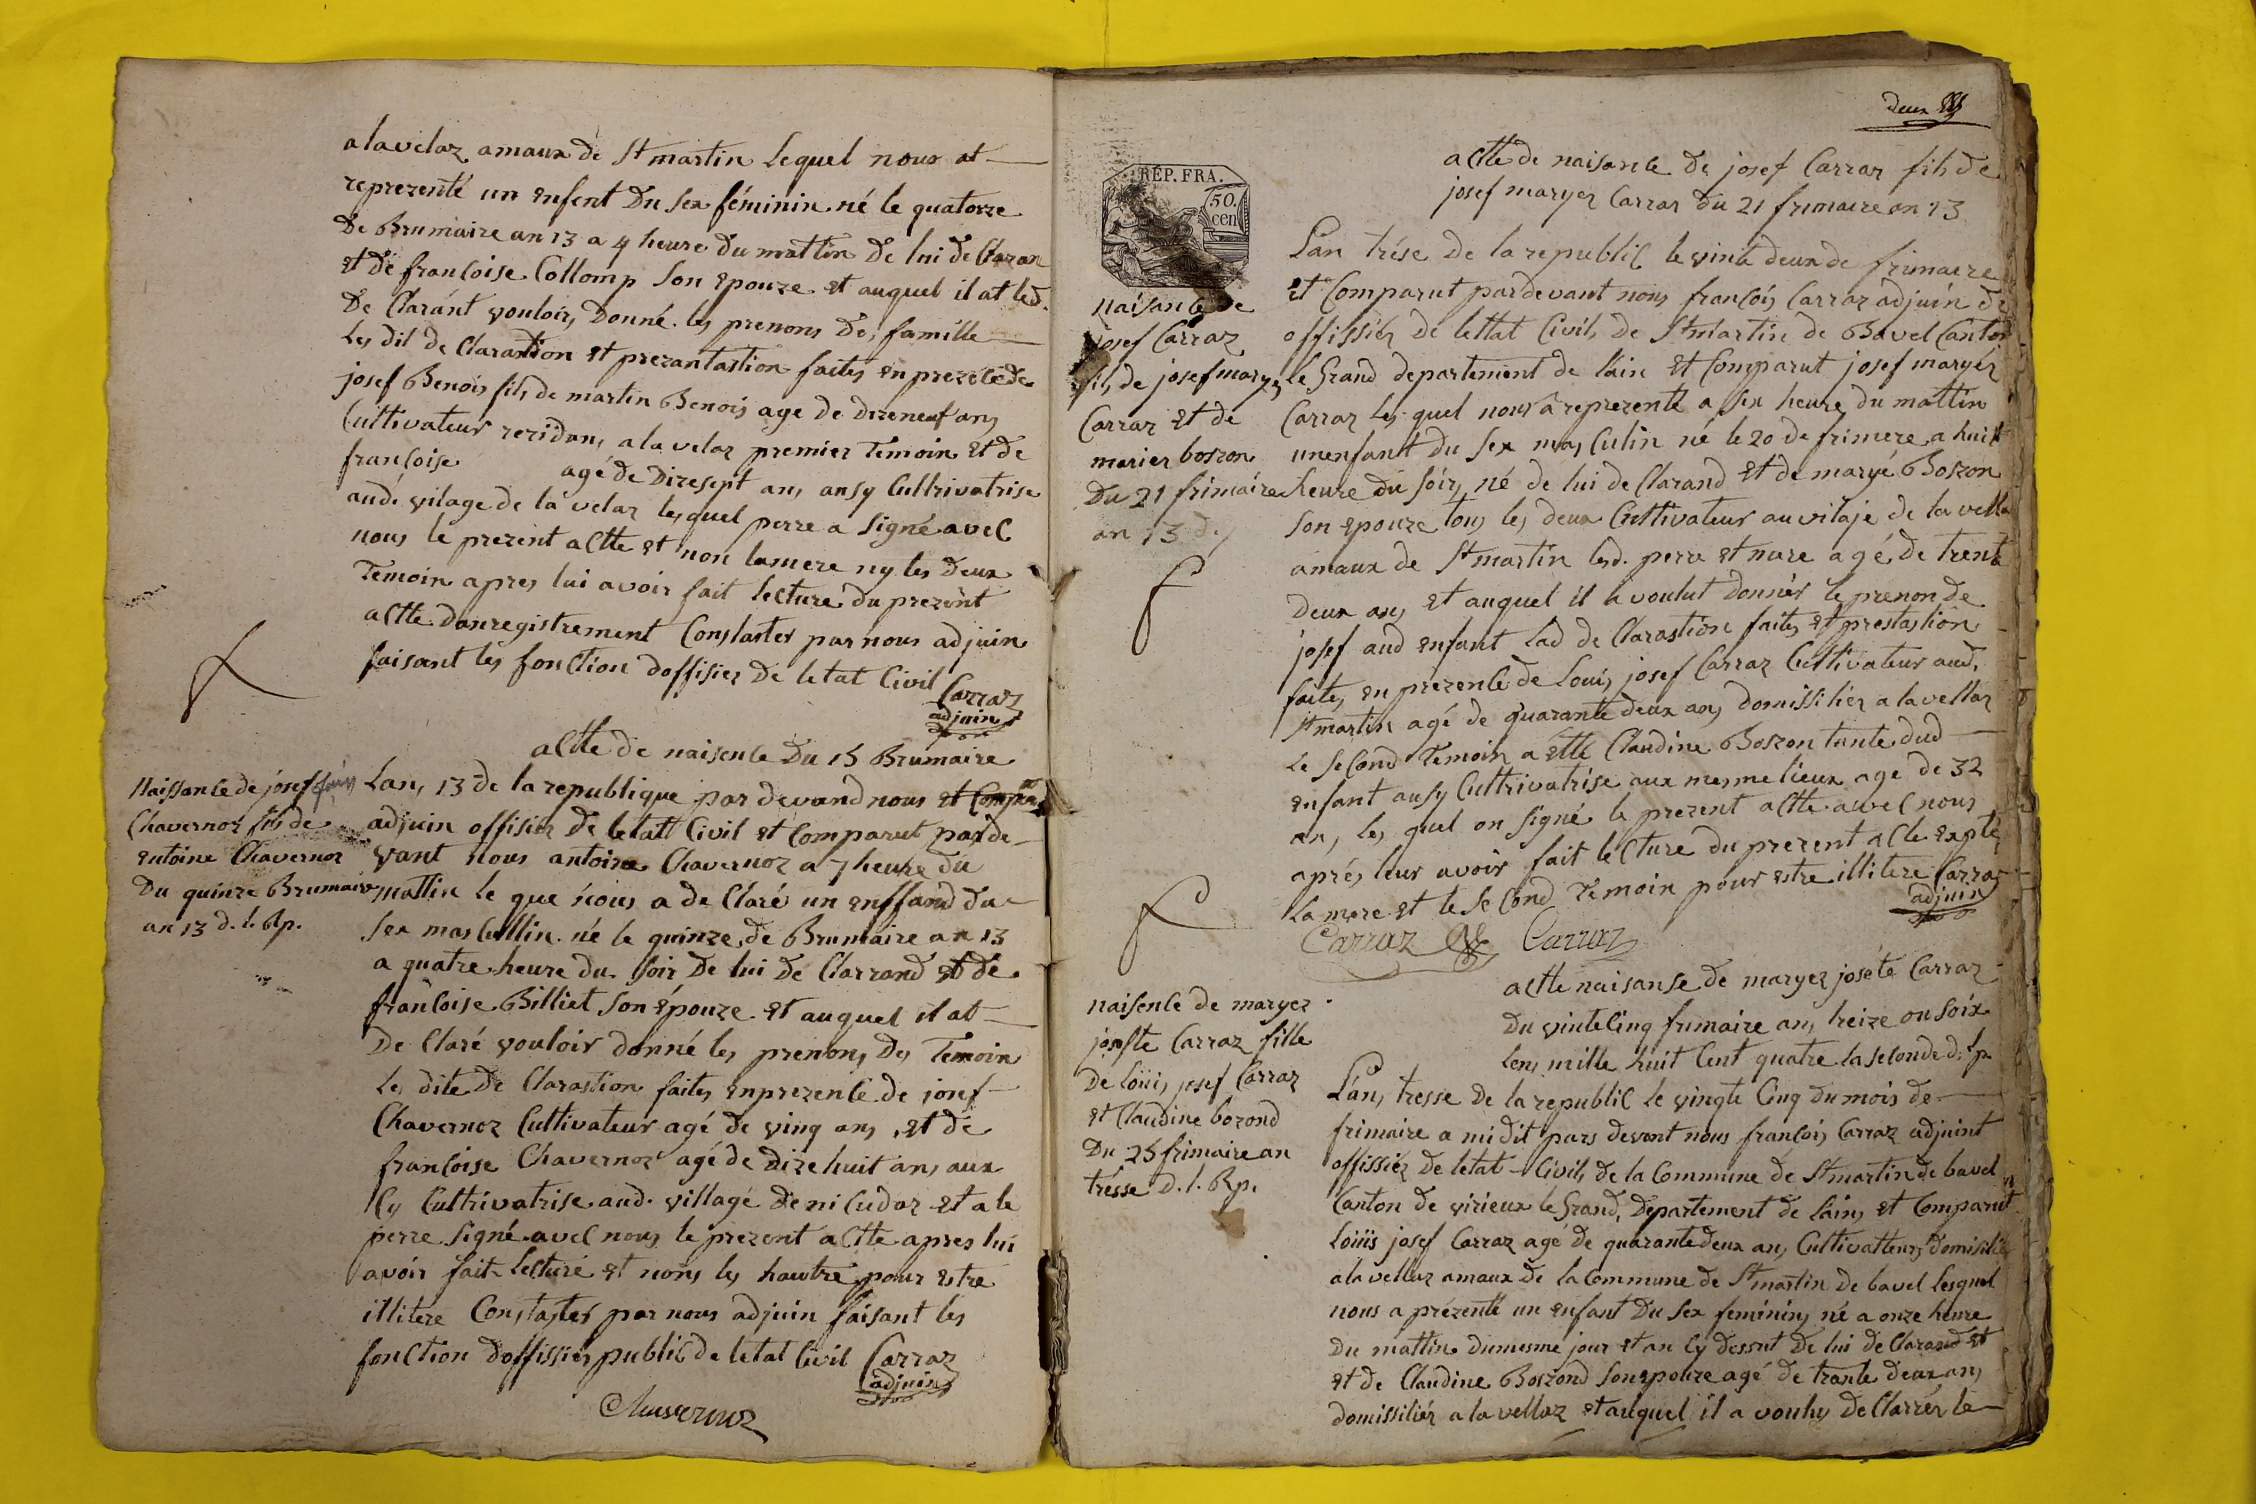 a lavelaz amaux de St martin Lequel nous at
reprezenté un enfent Du sex féminin né le quatorze
De Brumaire an 13 a 4 heure du mattin De lui de Claran
et de françoise Collomp Son epouze et auquel il at led.
De Clarant vouloir Donné les prenoms De famille
Les dit de Clarastion et prezantastion faites en prezeïce de
josef Benois fils de martin Benois age de dizeneuf ans
Cultivateur rezidans a la velaz premier Temoin et de
françoise agé de Dizesept ans ansy Cultrivatrise
audi vilage de la velaz lesquel perre a Signé avec
nous le prezent actte et non lamere ny les deux
Temoin apres lui avoir fait lecture du prezent
actte danregistrement Constaster par nous adjuin
faisant les fonction doffisier De letat Civil Carraz
adjuin
actte de naisence Du 15 Brumaire
Naissance de josef
Chavernoz fils de
entoine Chavernoz
Du quinze Brumaire
an 13 d. l. Rp.
Lan, 13 de la republique par devand nous et
adjuin offisier De letatt Civil et Comparut parde
vant nous antoine Chavernoz a 7 heure du
mattin le que nous a de Claré un enffand du
sex mas Cullin né le quinze de Brumaire an 13
a quatre heure du soir De lui De Clarrand et de
françoise Billiet Son épouze et auquel il at
De Claré vouloir donné les prenons Des Temoin
Les dite De Clarastion faites en prezence de josef
Chavernoz Cultivateur agé de ving ans, et de
françoise Chavernoz agé de Dize huit ans aux
Cy Cultrivatrise aud. villagé de ni Cudaz et a le
perre Signé avec nous le prezent actte apres lui
avoir fait lecture et nons les hautre pour estre
illitere Constaster par nous adjuin faisant les
fonction doffissier public de letat Civil Carraz
adjuin
Chavernoz
deux
REP. FRA.
50.
cen
Naisance de
josef Carraz
fils de josef maryer
Carraz et de
marier boszon
Du 21 frimaire
an 13 d.
actte de naisance de josef Carraz fils de
josef maryer Carraz du 21 frimaire an 13
Lan trése de la republic le vinte deux de frimaire
et Comparut pardevant nous françois Carraz adjuin de
offissier de lettat Civil, de St martin de Bavel Canton
le Grand departement de lain et Comparut josef maryer
Carraz les quel nous a reprezenté a six heure du mattin
un enfant du sex mas Culin né le 20 de frimere a huit
heure du soir, né de lui de Clarand et de maryé Boszon
son epouze tous les deux Cultivateur au vilaje de la vella
amaux de St martin led. perre et mare agé de trente
deux ans et auquel il a voulut donner le prenon de
josef aud enfant lad de Clarastion faites et prestastion
faites en prezence de Louis josef Carraz Cultivateur aud.
St martin agé de quarante deux ans domissilier a la vellaz
Le second temoin a ette Claudine Boszon tante dud
enfant ausy Cultrivatrise aux mesme lieux age de 32
an, les quel on signé le prezent actte avec nous
aprés leur avoir fait lecture du prezent acte expté
La mere et le second témoin pour estre illitere Carraz
adjuin
Carraz Carraz
naisence de maryer
josefte Carraz fille
De Loüis josef Carraz
et Claudine bozond
Du 25 frimaire an
trésse d. l. Rp.
actte naisanse de maryer joséte Carraz
Du vinte Cinq frimaire an, treize ou soix
Lens mille huit Cent quatre la seconde d. l.
L'an, tresse de la republic le vingte Cinq du mois de
frimaire a mi dit pars devant nous françois Carraz adjuint
offissier De letat Civil, de la Commune de St martin de bavel
Canton de virieux le Grand, Departement de lain, et Comparut
Loüis josef Carraz age de quarante deux an, Cultivatteur domisilie
a la vellaz amaux de la Commune de St martin de bavel lesquel
nous a prézenté un enfant Du sex feminin, né a onze heure
du mattin du mesme jour et an Cy dessut De lui de Clarand et
et de Claudine Boszond son epouze agé de trante deux an,
domissilier a la vellaz et auquel il a voulus de Clarrér le